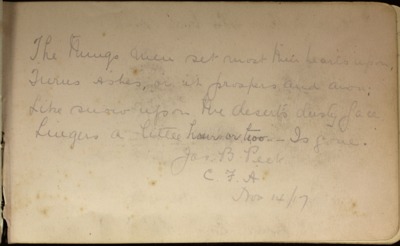 The things men set most their hearts upon
Turns Ashes, or it prospers and anon
Like snow upon the deserts dusty face
Lingers a little hour or two - Is gone.
Jas B Peck
C F A
Nov 14/17